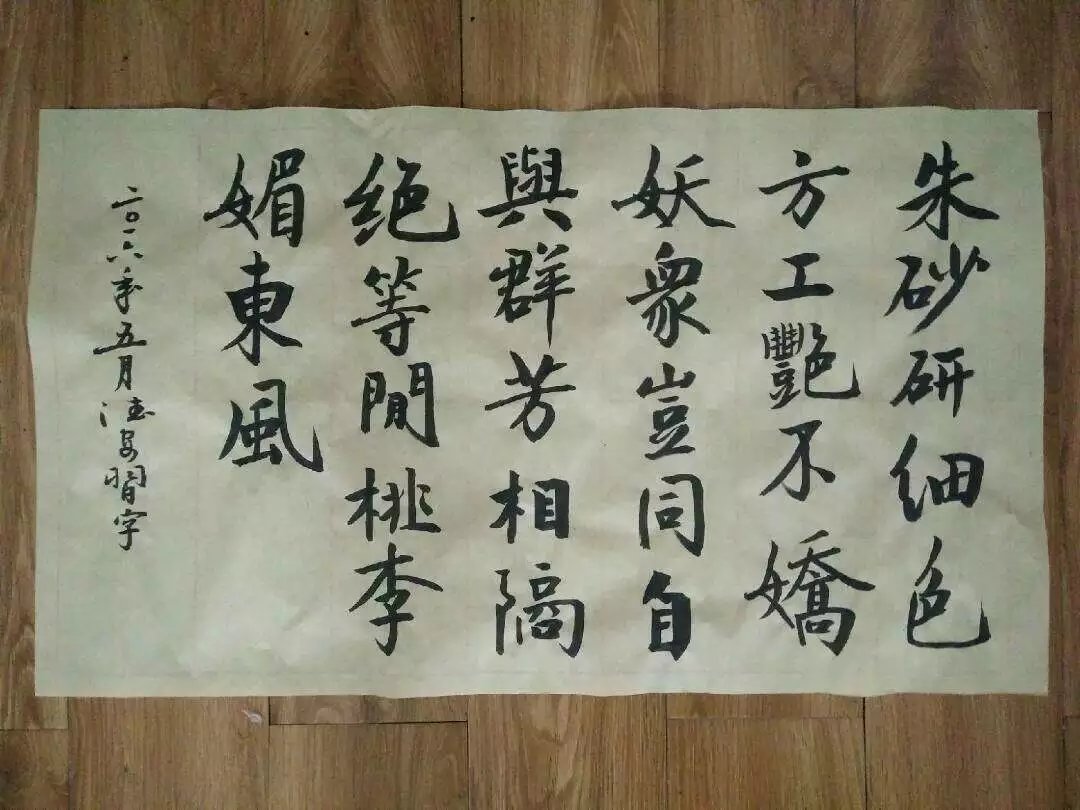 朱砂研细色
方工艷不嬌
妖衆豈同自
與群芳相隔
绝等閒桃李
媚東風
二〇一六年五月 習字